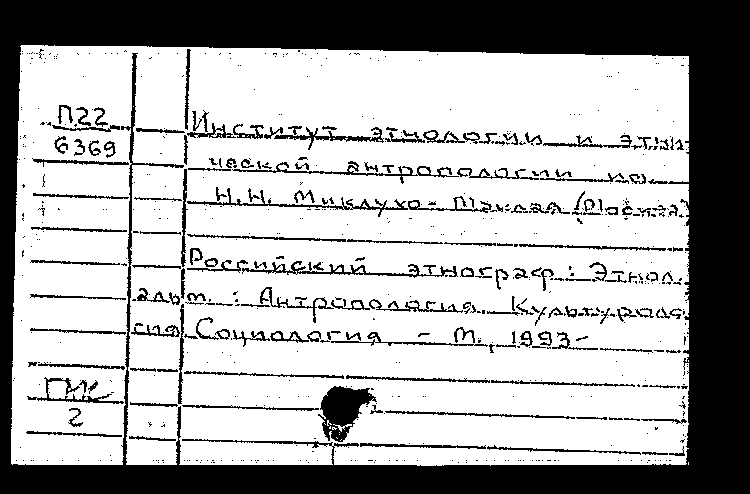 П22
6369
Институт этнологии и этни
ческой антропологии им.
Н.Н. Миклухо-Маклая (Москва)
Российский этнограф: Этнол.
альм. : Антропология. Культуроло
гия. Социология. - М., 1993-
ГМК
2